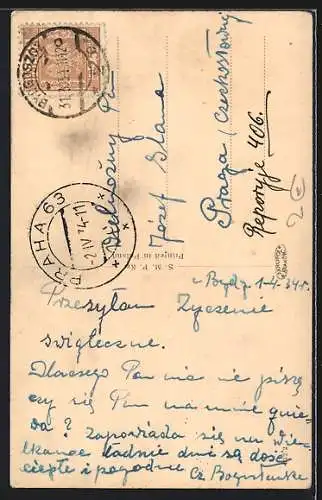 BYDGOSZCZ
PRAHA 63
-2.IV 34-11
Wielmożny Pan
Józef Slama
Praga / Czechosłowacja
Reporyje 406.
S. M. P. Kr.
Printed in Poland
Bydg. 1-4.34r.
Przesyłam Życzenie
świąteczne.
Dlaczego Pan nic nie piszę
czy się Pan na mnie gnie-
wa? Zapowiada się na Wiel-
kanoc ładnie dni są dość
ciepłe i pogodne
Cz.